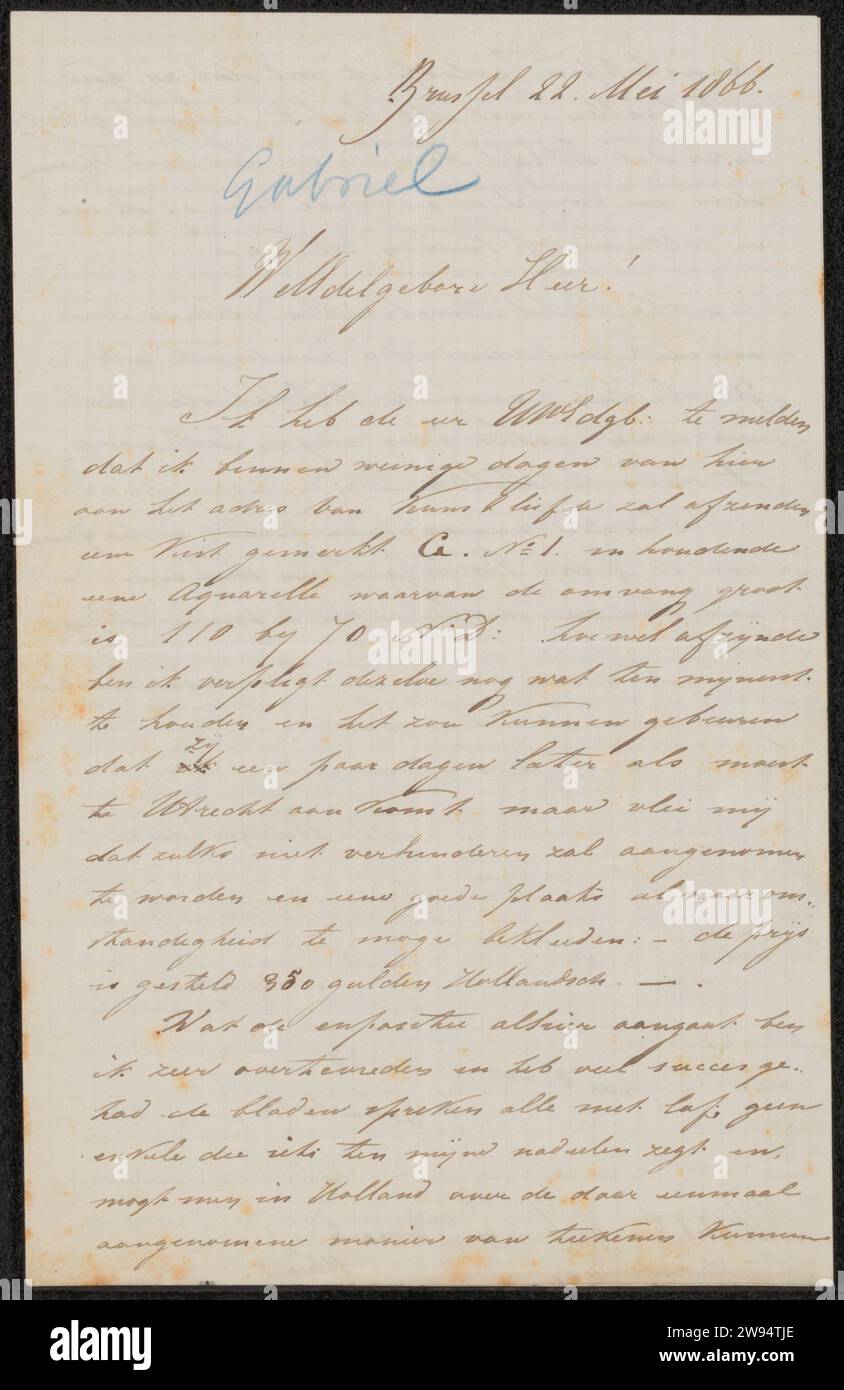 Brussel 22. Mei 1866.
Gabriel
WelEdelgebore Heer!
Ik heb de eer UWEdgb: te melden
dat ik binnen weinige dagen van hier
aan het adres van Kunstliefde zal afzenden
eene Kist gemerkt G. No 1. inhoudende
eene Aquarelle waarvan de omvang groot
is 110 by 70 N: D: hoewel afzynde
ben ik verpligt dezelve nog wat ten mynent
te houden en het zou kunnen gebeuren
dat zy een paar dagen later als moest
te Utrecht aan komt maar vlei mij
dat zulks niet verhinderen zal aangenomen
te worden en eene goede plaats al naar om..
standigheid te moge bekleeden: - de prijs
is gesteld 350 gulden Hollandsch. — .
Wat de expositie alhier aangaat ben
ik zeer overtevreden en heb veel succes ge..
had de bladen spreken alle met lof, geen
enkele die iets ten mijne nadeelen zegt en,
mogt men in Holland over de daar eenmaal
aangenomene manier van teekenen kunnen
alamy
2W94TJE
www.alamy.com